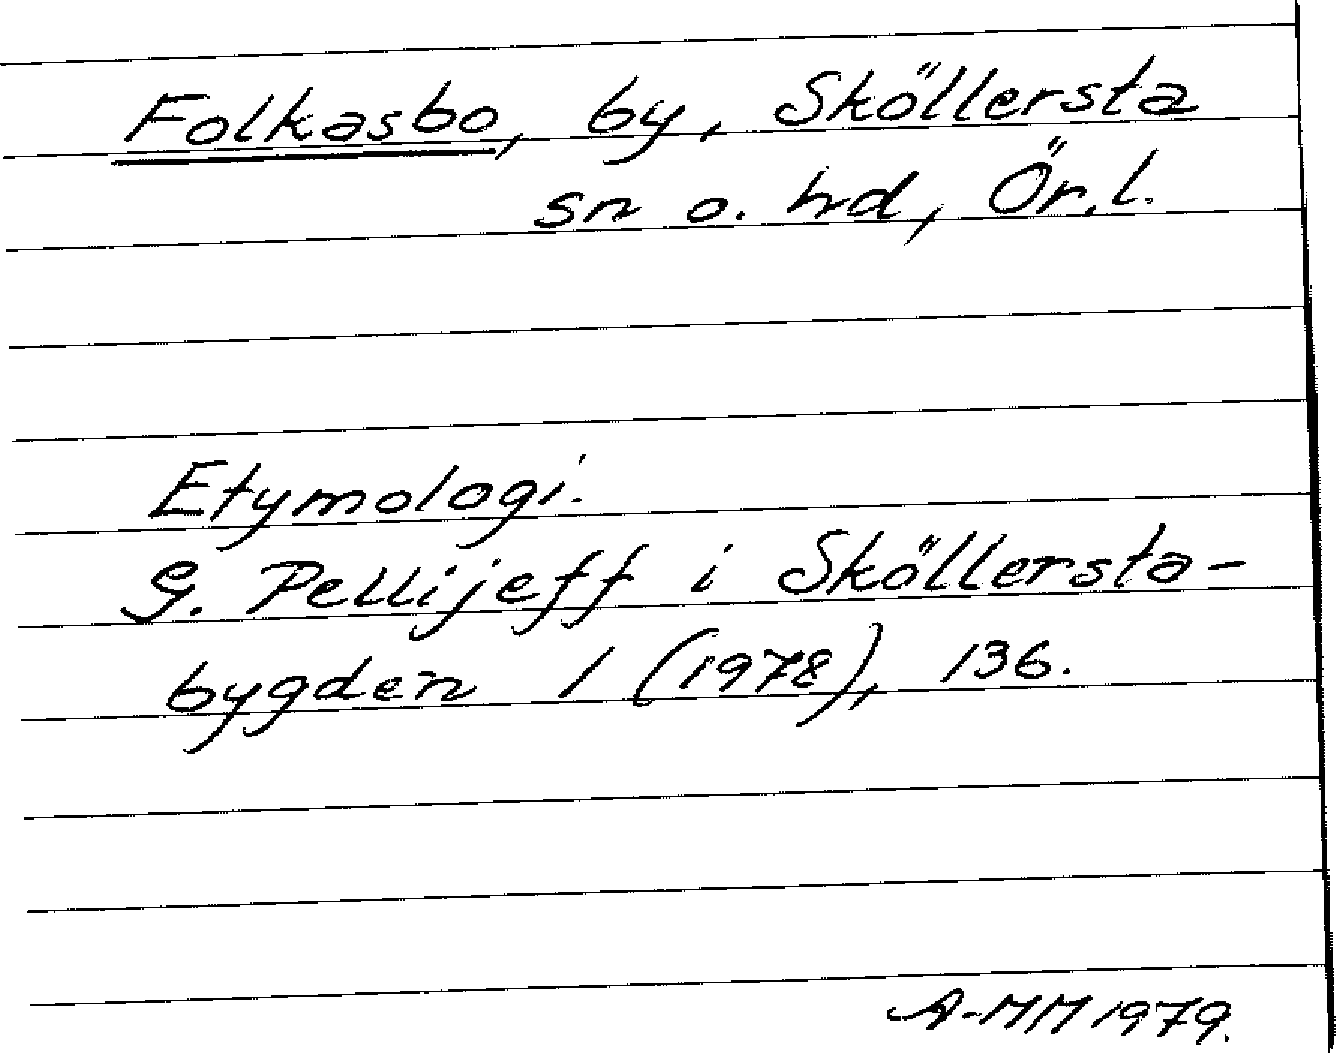 Folkasbo, by, Sköllersta
sn o. hd, Ör.l.
Etymologi.
G. Pellijeff i Sköllersta-
bygden 1 (1978), 136.
A-MM 1979.